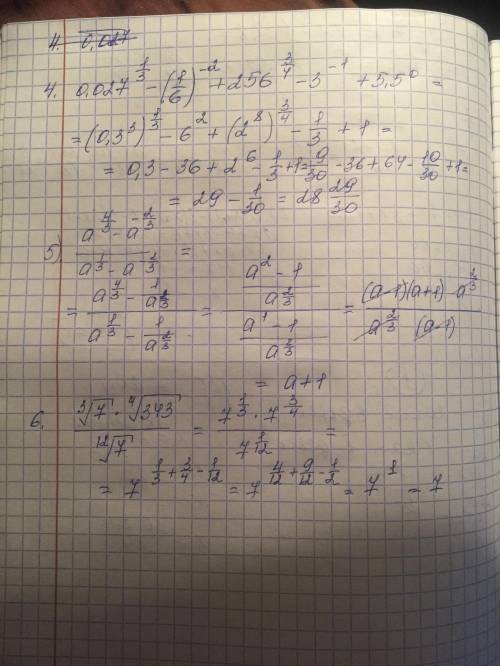 4. 0,027
4. 0,027^{1/3} - (1/6)^{-2} + 256^{3/4} - 3^{-1} + 5,5^0 =
= (0,3^3)^{1/3} - 6^2 + (2^8)^{3/4} - 1/3 + 1 =
= 0,3 - 36 + 2^6 - 1/3 + 1 = 9/30 - 36 + 64 - 10/30 + 1 =
= 29 - 1/30 = 28 29/30
5) (a^{4/3} - a^{-2/3}) / (a^{1/3} - a^{-2/3}) =
= (a^{4/3} - 1/a^{2/3}) / (a^{1/3} - 1/a^{2/3}) = ((a^2 - 1)/a^{2/3}) / ((a^1 - 1)/a^{2/3}) = ((a-1)(a+1) a^{2/3}) / (a^{2/3} (a-1))
= a+1
6. (∛7 · ∜343) / ¹²√7 = (7^{1/3} · 7^{3/4}) / 7^{1/12} =
= 7^{1/3 + 3/4 - 1/12} = 7^{4/12 + 9/12 - 1/2} = 7^1 = 7